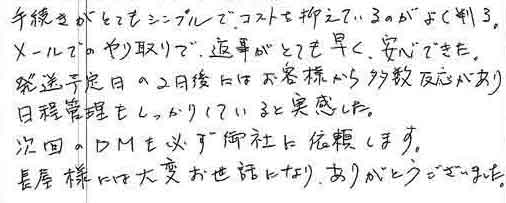 手続きがとてもシンプルで、コストも抑えているのがよく判る。
メールでのやり取りで、返事がとても早く、安心できた。
発送予定日の2日後にはお客様から多数反応があり
日程管理もしっかりしていると実感した。
次回のDMも必ず御社に依頼します。
長屋様には大変お世話になり、ありがとうございました。